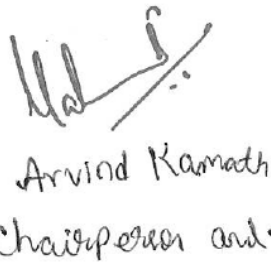 Arvind Kamath
Chairperson and